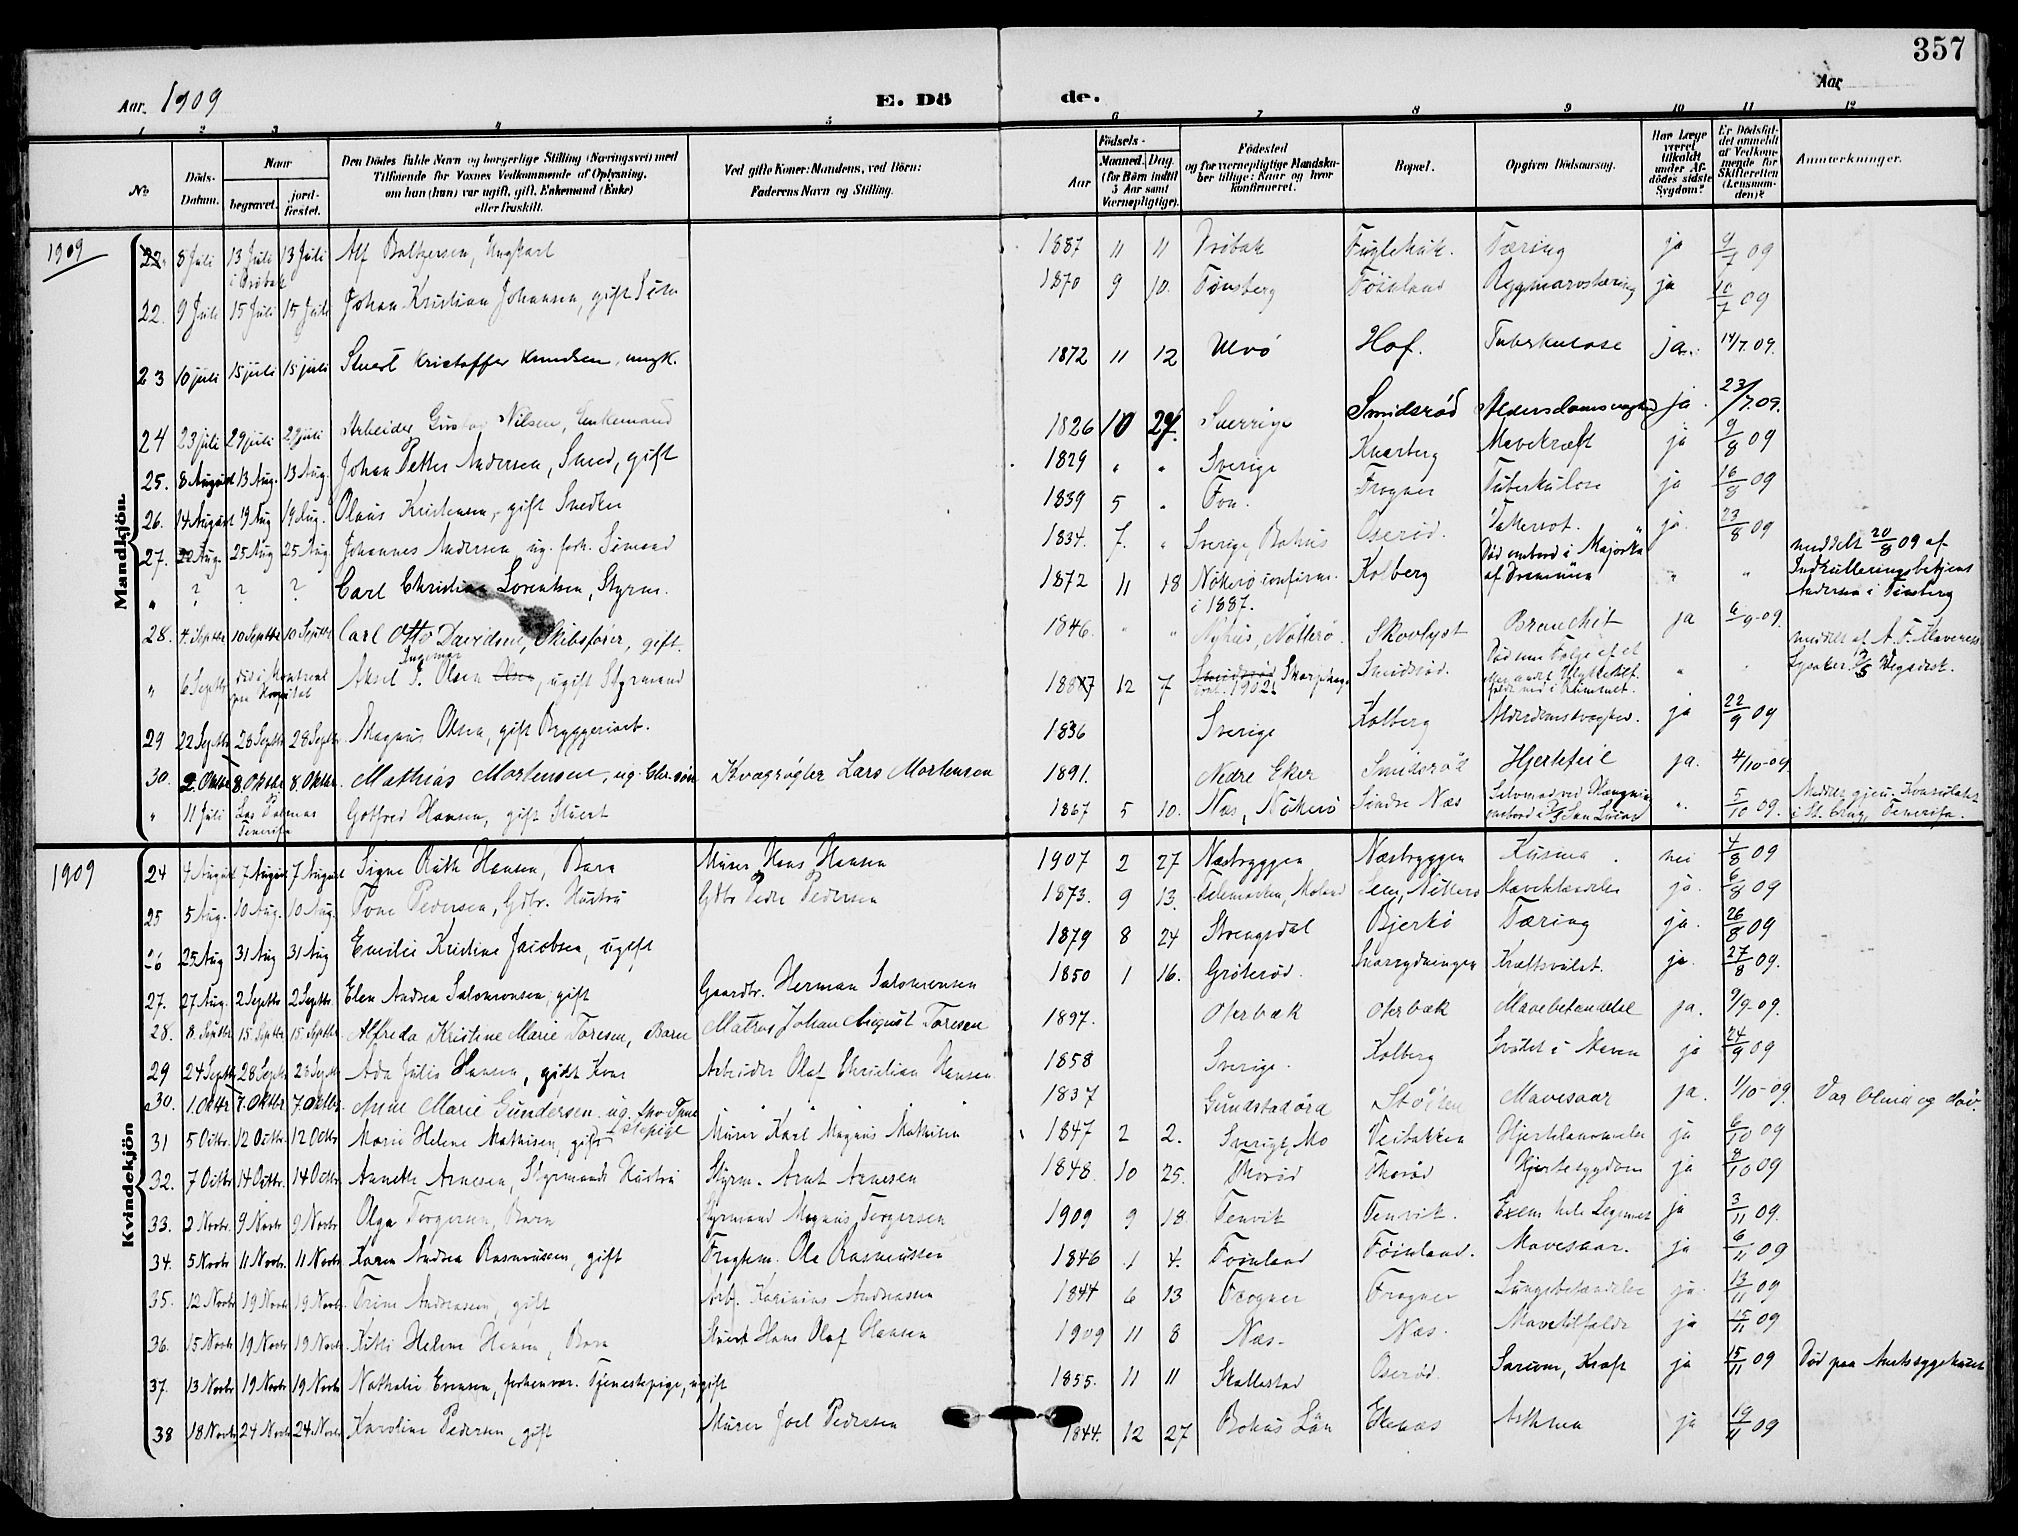 357
Aar. 1909 E. Dö de. Aar
1 2 3 4 5 6 7 8 9 10 11 12
No Döds-Datum. Naar begravet. jord-fæstet. Den Dödes fulde Navn og borgerlige Stilling (Næringsvei) med Tilföiende for Voxnes Vedkommende af Oplysning, om han (hun) var ugift, gift, Enkemand (Enke) eller fraskilt. Ved gifte Koner: Mandens, ved Börn: Faderens Navn og Stilling. Aar Födsels- Maaned. Dag. (for Börn indtil 5 Aar samt Værnepligtige). Födested og for værnepligtige Mandskaber tillige: Naar og hvor konfirmeret. Bopæl. Opgiven Dödsaarsag. Har Læge været tilkaldt under Afdödes sidste Sygdom? Er Dödsfaldet anmeldt af Vedkommende for Skifteretten (Lensmanden)? Anmærkninger.
Mandkjön.
1909 22. 8 Juli 13 Juli i Drøbak 13 Juli Alf Baltzersen, Ungkarl 1887 11 11 Drøbak Fuglehuk. Tæring ja 9/7 09
22. 9 Juli 15 Juli 15 Juli Johan Kristian Johansen, gift 1870 9 10 Tønsberg Föinland Rygmarvstæring ja 10/7 09
23 10 juli 15 juli 15 juli Stuert Kristoffer Knudsen, ungk. 1872 11 12 Ulvö Hof. Tuberkulose ja. 14/7. 09.
24 23 juli 29 juli 29 juli Arbeider Gustav Nilsen, Enkemand 1826 10 24. Sverrige Smidsröd Alderdomssvaghed ja. 23/7. 09.
25. 8 August 13 Aug. 13 Aug. Johan Petter Andersen, Smed, gift 1829 " " Sverige Knarberg Mavekræft ja 9/8 09
26. 14 August 19 Aug 19 Aug. Olaus Kristensen, gift Snedker 1839 5 " Fon. Frogner Tuberkulose ja 16/8 09
27. 22 Aug. 25 Aug 25 Aug. Johannes Andersen, ug. forh. Sömand 1834. 7. " Sverige, Bohus Oseröd. ja. 23/8 09
" ? ? ? Carl Christian Lorentsen, Styrm. 1872 11 18 Nötterö confirm. i 1887. Kolberg Död ombord i "Majorka" af Drammen " " meddelt 20/8 09 af Indrulleringsbetjent Andersen i Tönsberg
28. 4. Septbr 10 Septbr 10 Septbr. Carl Otto Davidsen, Skibsförer, gift. 1846. " " Nyhus, Nötterö. Skovlyst Bronchit ja 6/9 09.
" 6 Septbr död i Montreal Hospital Aksel I. Ingemar Olsen Olsen, ugift Styrmand 12 7 Smidsröd 1902 Smidsröd. Död som Følge af et Ulykkestilf. " "
29 22 Septbr 28 Septbr 28 Septbr Magnus Olsen, gift Bryggeriarb. 1836 Sverige Kolberg Alderdomssvaghed. ja 22/9 09
30. 2. Oktbr 8. Oktbr 8. Oktbr. Mathias Mortensen, ug. Kvægrøgter Lars Mortensen 1891. Nedre Eker Smidsröd Hjertefeil ja. 4/10-09
" 11 Juli Las Palmas Tenerifa Gotfred Hansen, gift Stuert 1867 5 10. Næs, Nötterö Söndre Næs ". 5/10 09. Konsulatet i St. Cruz, Tenerifa.
Kvindekjön
1909 24 4 August 7 August 7 August Signe Ruth Hansen, Barn Murer Hans Hansen 1907 2 27 Næsbryggen Næsbryggen nei 4/8 09
25 5 Aug. 10 Aug. 10 Aug. Tone Pedersen, Gdbr. Hustru Gdbr Peder Pedersen 1873. 9 13. Telemarken, Moland Nötterö ja. 6/8 09
26 25 Aug 31 Aug 31 Aug Emilie Kristine Jacobsen, ugift 1879 8 24 Strengsdal Bjerkö Tæring ja. 26/8 09
27. 27 Aug. 2 Septbr. 2 Septbr. Elen Andrea Salomonsen, gift Gaardbr. Herman Salomonsen 1850 1 16. Gröteröd. Snarrydningen ja. 27/8 09.
28. 8. Septbr 15 Septbr 15 Septbr. Alfreda Kristine Marie Toresen, Barn Matros Johan August Toresen 1897. Oterbæk Oterbæk Mavebetændelse ja. 9/9-09.
29 24 Septbr 28 Septbr 28 Septbr Ada Julie Hansen, gift Kone Arbeider Olaf Christian Hansen 1858 Sverige. Kolberg Svulst i Maven ja 24/9 09
30. 1. Oktbr 7. Oktbr 7. Oktbr. Anne Marie Gundersen ug. fhv. Tjenestepige " " " 1837 Gundstadörd Stöiten Mavesaar ja. 1/10-09. Var blind og döv.
31 5 Octbr 12 Octbr. 12 Octbr Marie Helene Mathisen, gift Murer Karl Magnus Mathisen 1847 2 2. Sverige, Mo Veibakken ja 6/10 09
32. 7 Octbr 14 Octbr. 14 Octbr Annette Arnesen, Styrmands Hustru Styrm. Arnt Arnesen 1848. 10 25. Thoröd Thoröd Hjertesygdom ja 8/10 09
33. 2 Novbr. 9 Novbr 9 Novbr Olga Torgersen, Barn Styrmand Magnus Torgersen 1909 9 18. Tenvik Tenvik. Exem hele Legemet ja 3/11 09.
34. 5 Novbr 11 Novbr. 11 Novbr Karen Andrea Rasmussen, gift Fragtem. Ole Rasmussen 1846 1 4. Föinland Föinland. Mavesaar. ja 6/11 09
35. 12 Novbr 19 Novbr. 19 Novbr. Trine Andreassen, gift Arb. Karinius Andreassen 1844 6 13 Frogner Frogner Lungebetændelse ja. 13/11 09
36. 15 Novbr 19 Novbr. 19 Novbr. Kitti Helene Hansen, Barn Stuert Hans Olaf Hansen 1909 11 8 Næs. Næs. Mavetilfælde ja 15/11 09
37. 13 Novbr 19 Novbr 19 Novbr Nathalie Evensen, forhenvær. Tjenestepige, ugift 1855. 11 11 Skallestad Oseröd. Sarcom, Kræft ja 15/11 09 Död paa Amtssygehuset
38 18 Novbr. 24 Novbr 24 Novbr Karoline Pedersen, gift Murer Joel Pedersen 1844. 12 27 Bohus Län Ekenæs Asthma ja 19/11 09